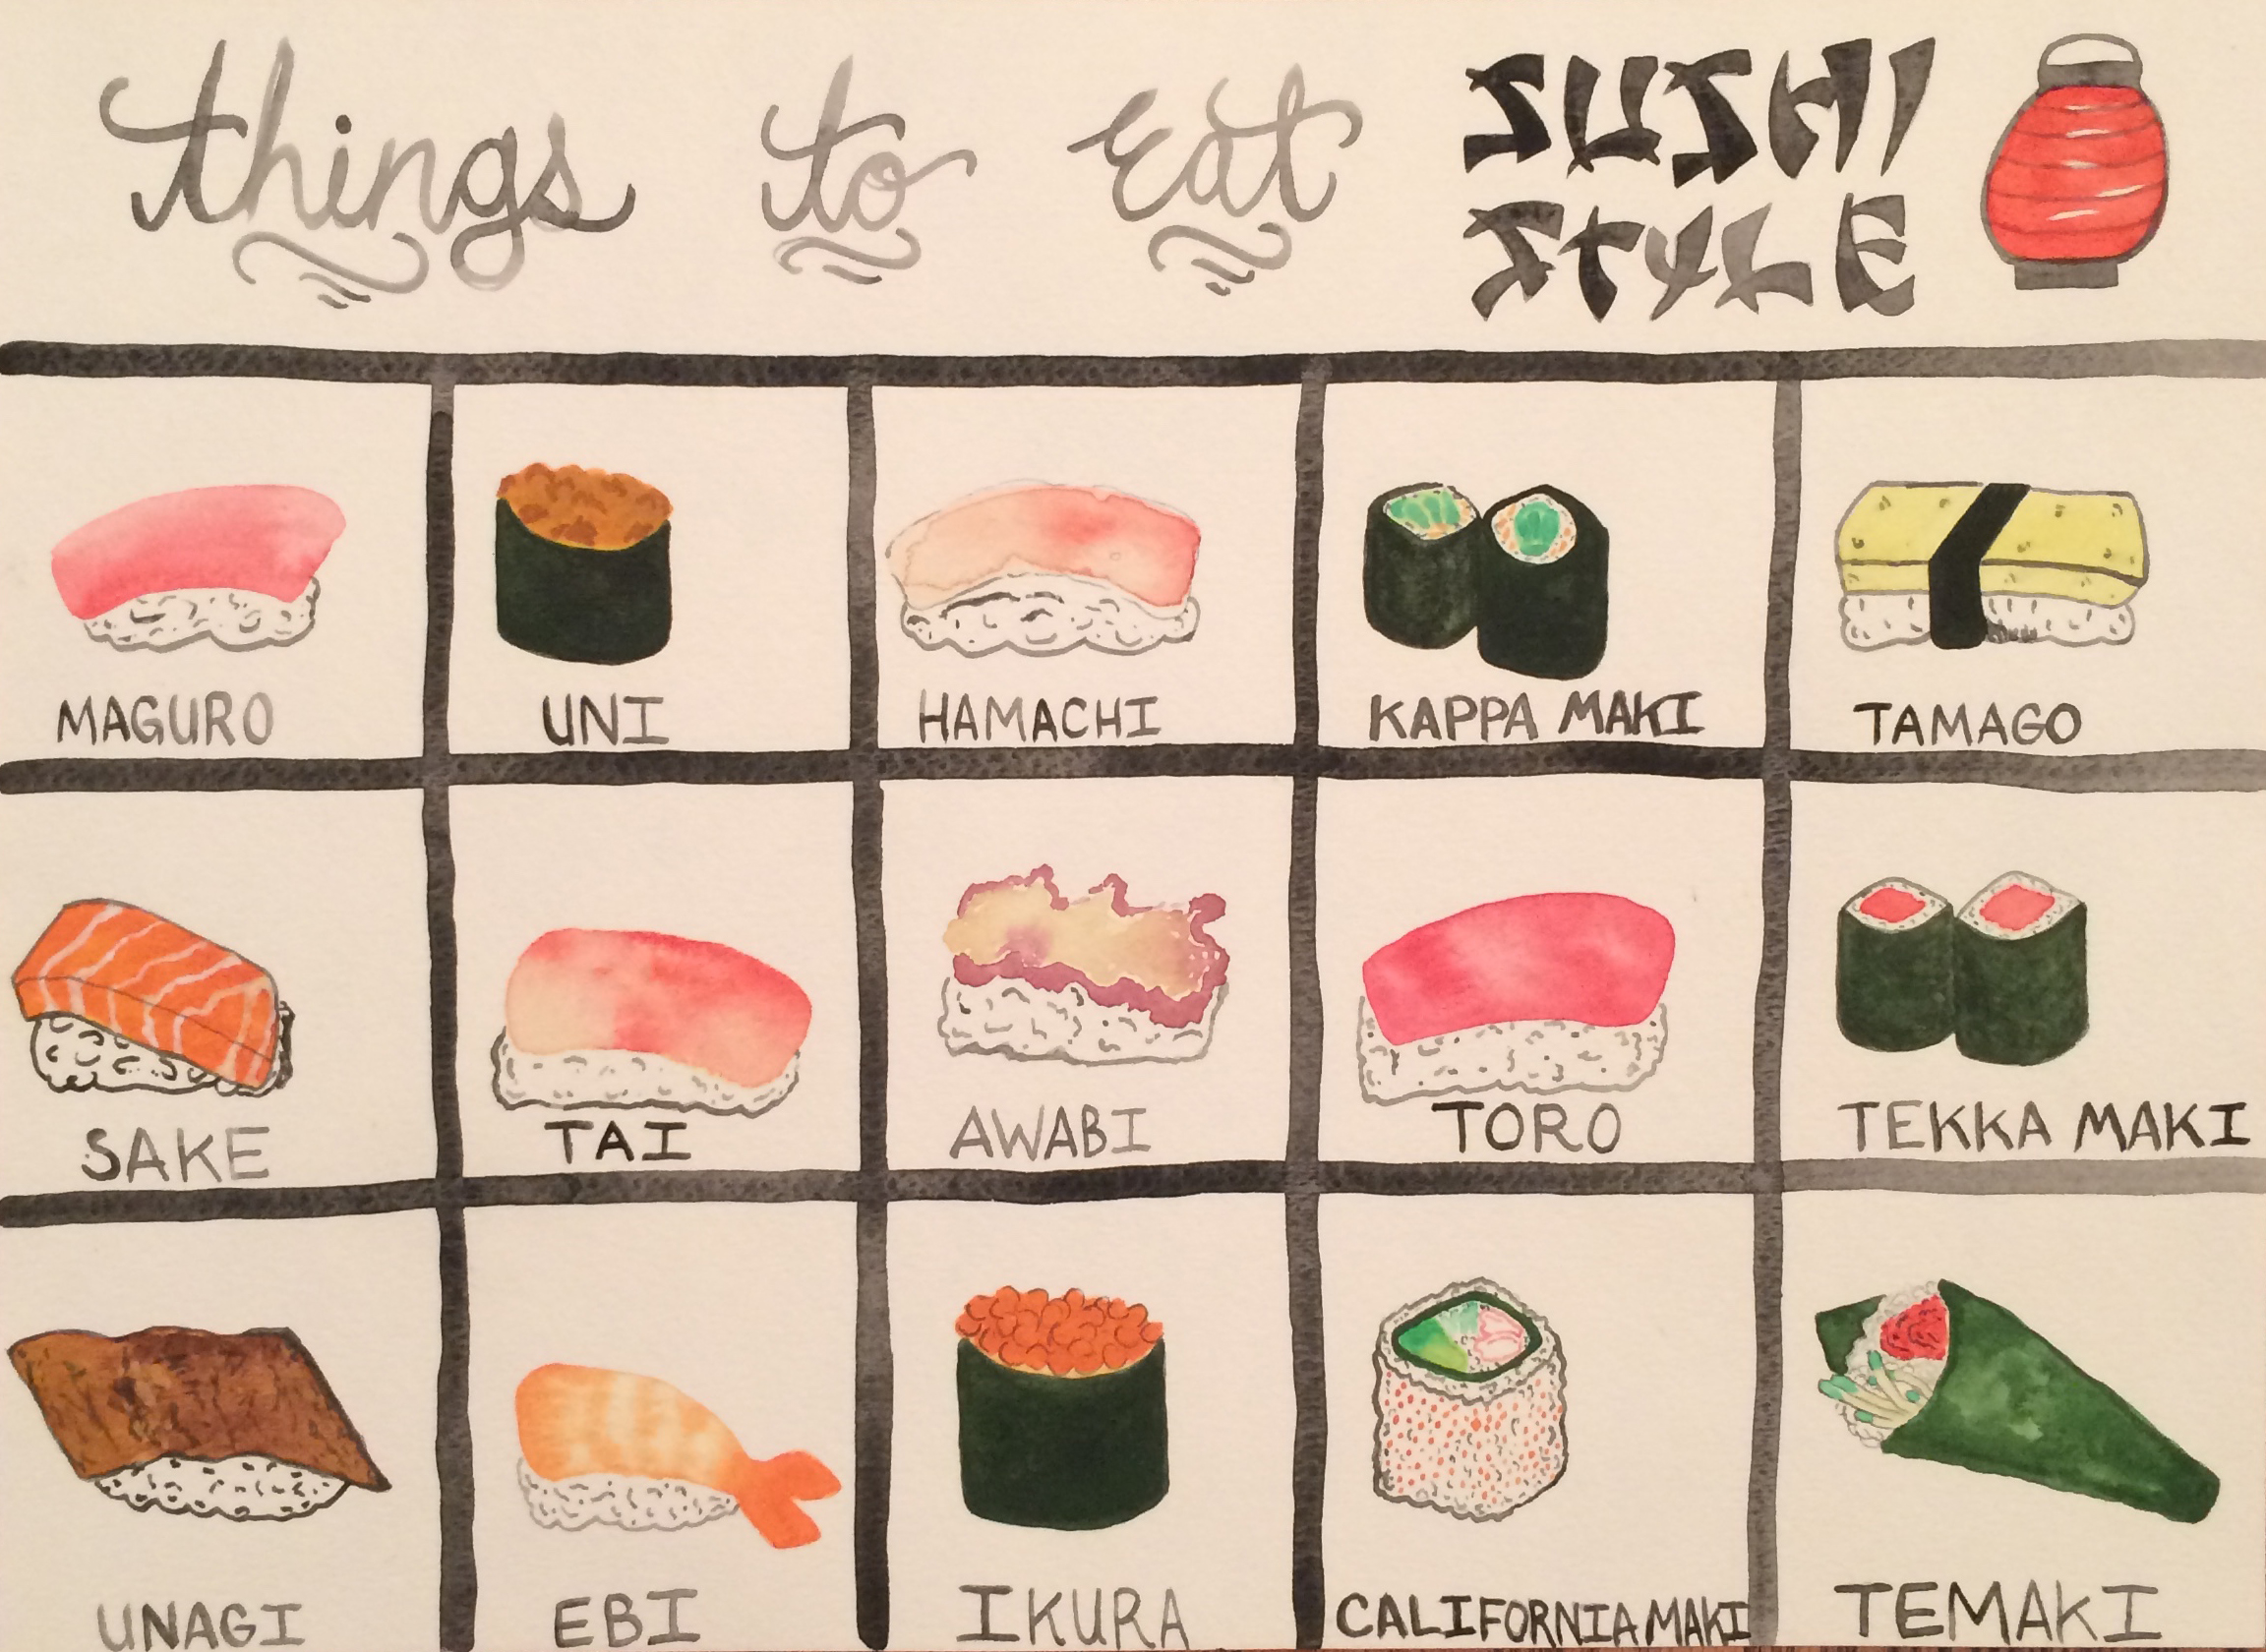 things to Eat SUSHI
STYLE
MAGURO UNI HAMACHI KAPPA MAKI TAMAGO
SAKE TAI AWABI TORO TEKKA MAKI
UNAGI EBI IKURA CALIFORNIA MAKI TEMAKI